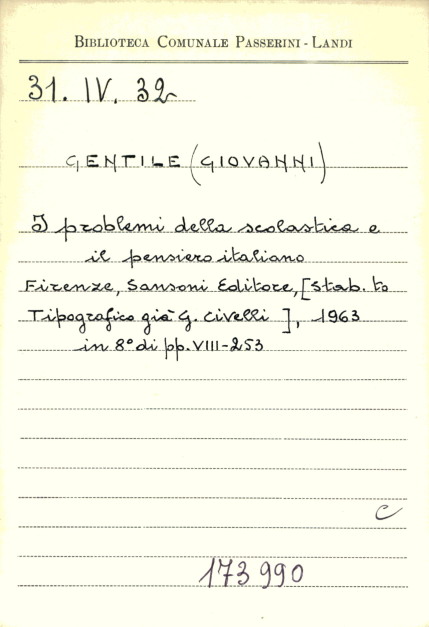 BIBLIOTECA COMUNALE PASSERINI - LANDI
31. IV. 32
GENTILE (GIOVANNI)
I problemi della scolastica e
il pensiero italiano
Firenze, Sansoni Editore, [Stab. to
Tipografico già G. Civelli ], 1963
in 8° di pp. VIII-253
C
173990